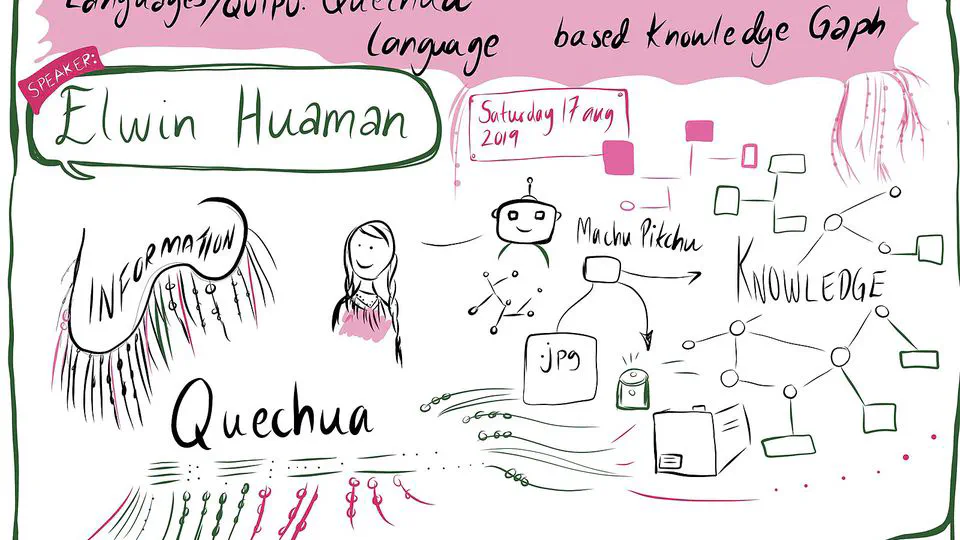 Languages/QUIPU: Quechua
Language based Knowledge Gaph
SPEAKER:
Elwin Huaman
Saturday 17 aug
2019
INFORMATION
Machu Pikchu
KNOWLEDGE
.jpg
Quechua